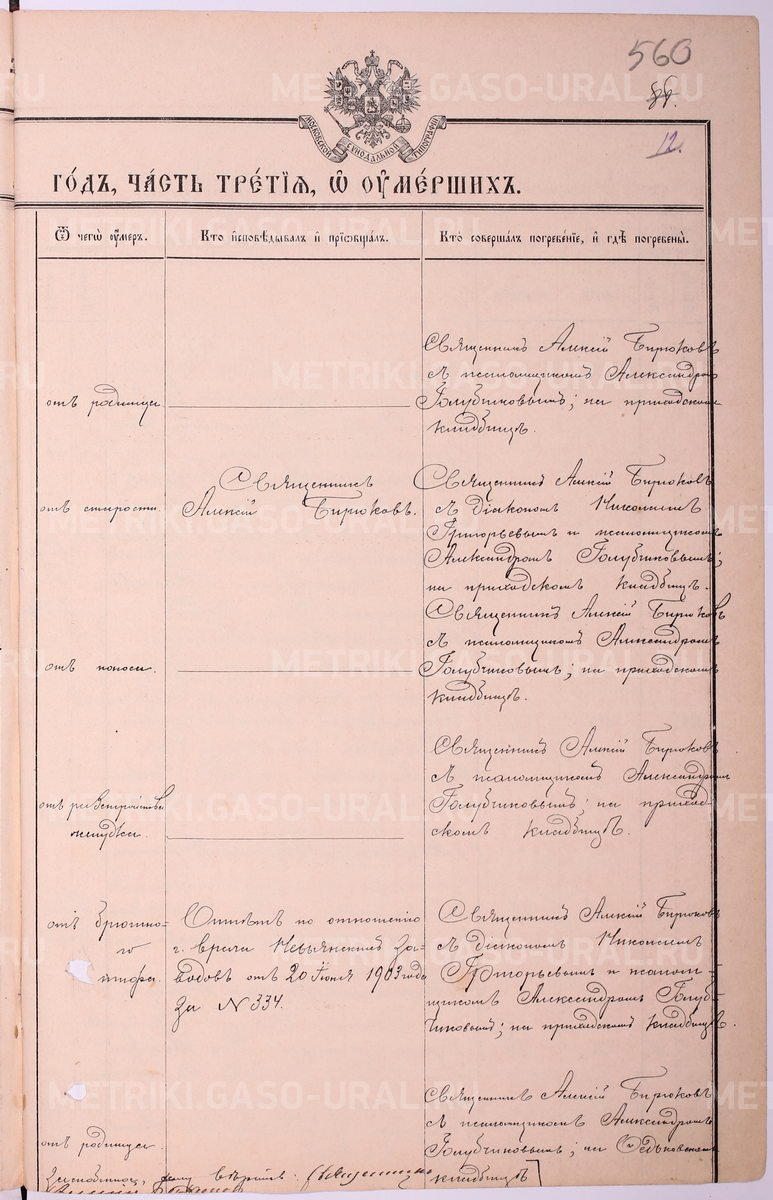 560
12.
МОСКОВСКОЙ СѴНОДАЛЬНОЙ ТИПОГРАФІИ
ГО́ДЪ, ЧА́СТЬ ТРЕ́ТІѦ, Ѡ҆ ОУ҆МЕ́РШИХЪ.
Ѿ чегѡ̀ ᲂу҆́меръ.
Кто̀ и҆сповѣ́дывалъ и҆ прїѡбща́лъ.
Кто̀ соверша́лъ погребе́нїе, и҆ гдѣ̀ погребены̀.
отъ родимца
Священникъ Алексій Бирюковъ
съ псаломщикомъ Александромъ
Голубчиковымъ; на приходскомъ
кладбищѣ.
отъ старости.
Священникъ
Алексій Бирюковъ.
Священникъ Алексій Бирюковъ
съ діакономъ Николаемъ
Григорьевымъ и псаломщикомъ
Александромъ Голубчиковымъ;
на приходскомъ кладбищѣ.
отъ поноса.
Священникъ Алексій Бирюковъ
съ псаломщикомъ Александромъ
Голубчиковымъ; на приходскомъ
кладбищѣ.
отъ разстройства
желудка.
Священникъ Алексій Бирюковъ
съ псаломщикомъ Александромъ
Голубчиковымъ; на приход-
скомъ кладбищѣ.
отъ брюшно-
го
тифа.
Отпѣтъ по отношенію
г. врача Невьянскихъ За-
водовъ отъ 20 Іюня 1903 года
за № 334.
Священникъ Алексій Бирюковъ
съ діакономъ Николаемъ
Григорьевымъ и псалом-
щикомъ Александромъ Голуб-
чиковымъ; на приходскомъ кладбищѣ.
отъ родимца
Священникъ Алексій Бирюковъ
съ псаломщикомъ Александромъ
Голубчиковымъ; на
кладбищѣ
вѣрно: Священникъ
METRIKI.GASO-URAL.RU